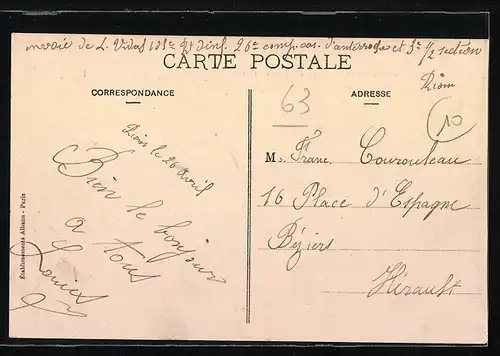 envoie de L. Vidal 121e Rt d'inf. 26e comp. cas. d'anterroche et 3e 1/2 section
Riom
CARTE POSTALE
CORRESPONDANCE
ADRESSE
63
10
Riom le 26 Avril
Bien le bonjour
a tous
Louis
M. Franc. Courouleau
16 Place d'Espagne
Béziers
Hérault
Etablissements Albans - Paris